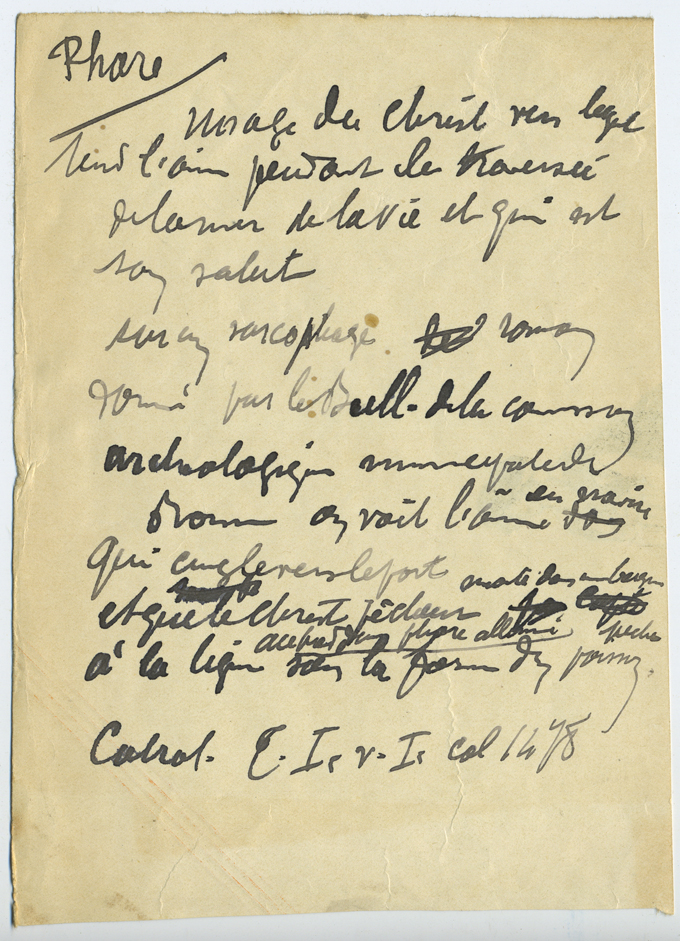 Phare
Image du Christ vers lequel
tend l'âme pendant la traversée
de la mer de la vie et qui est
son salut
sur un sarcophage romain
donné par le Bull. de la commission
archeologique municipale de
Rome on voit l'âme en navire
qui cingle vers le port
monté dans une barque
et que le Christ pêcheur pêche
au pied d'un phare allumé
à la ligne sous la forme d'un poisson.
Cabrol. T. I, v. I, col 1478